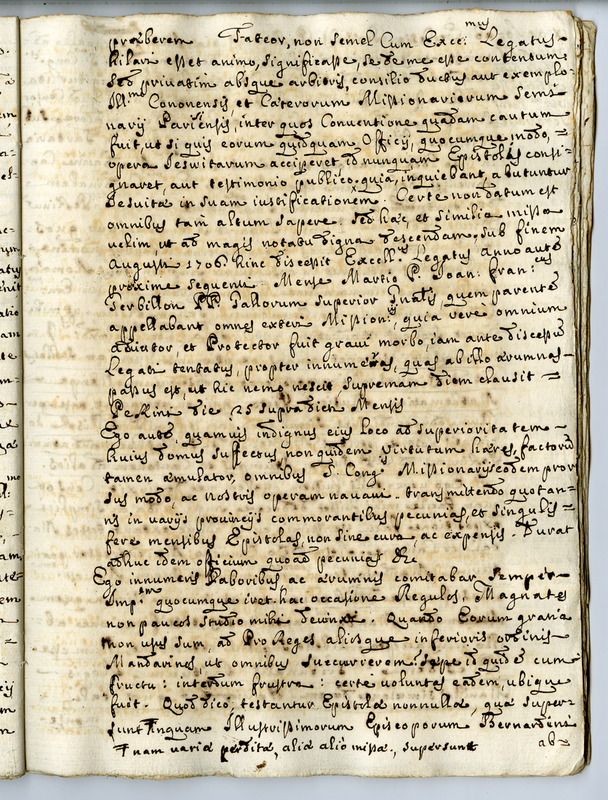 præberem Fateor, non semel Cum Exce: Legatus-
hilari esset animo, significasse, se de me esse contentum
sed privatim absque arbitris, consilio ductus aut exemplo
Illmi Cononensis et Cæterorum Missionariorum Semi
narij Parisiensis, inter quos Conventione quadam cautum
fuit, ut si quis eorum quidquam Officij, quocumque modo,
opera Jesuitarum acciperet, id nunquam Epistolis consi-
gnaret, aut testimonio publico: quia, inquiebant, abutuntur
Jesuitæ in suam iustificationem. Certe non datum est
omnibus tam altum sapere. Sed hæc, et similia missa
velim, ut ad magis notatu digna descendam, sub finem
Augusti 1706 hinc discessit Excellmus Legatus anno autē
proxime sequenti. Mense Martio P. Joan: Franeus
Gerbillon PP. Gallorum Superior Gnalis quem parentē
appellabant omnes exteri Mission: quia vere omnium
adiutor, et Protector fuit gravi morbo, iam ante discessū
Legati tentatus, propter innumeras, quas ab illo ærumnas
passus est, ut hic nemo nescit, supremam diem clausit =
Pekini die 25 supradicti Mensis
Ego autē, quamvis indignus eius loco ad superioritatem
huius domus suffectus, non quidem virtutum hæres, factorū
tamen æmulator, omnibus S. Congis Missionarijs eodem pror
sus modo, ac nostris operam navavi. transmittendo quotan-
nis in varijs provincijs commorantibus pecunias, et singulis
fere mensibus Epistolas, non sine cura, ac expensis. Durat
adhuc idem officium quoad pecunias &c
Ego innumeris Laboribus ac ærumnis comitabar semper
Imp:em quocumque iret. hac occasione Regulos, Magnates
non paucos studio mihi devinxi. Quando Eorum gratia
non usus sum, ad ProReges, aliosque inferioris ordinis
Mandarinos, ut omnibus succurrerem? Sæpe id quidē cum
fructu: interdum frustra: certe voluntas eadem, ubique
fuit. Quod dico, testantur Epistolæ nonnullæ, quæ super-
sunt inquam Illustrissimorum Episcoporum Bernardini
nam variæ perditæ, aliæ alio missæ, supersunt ab